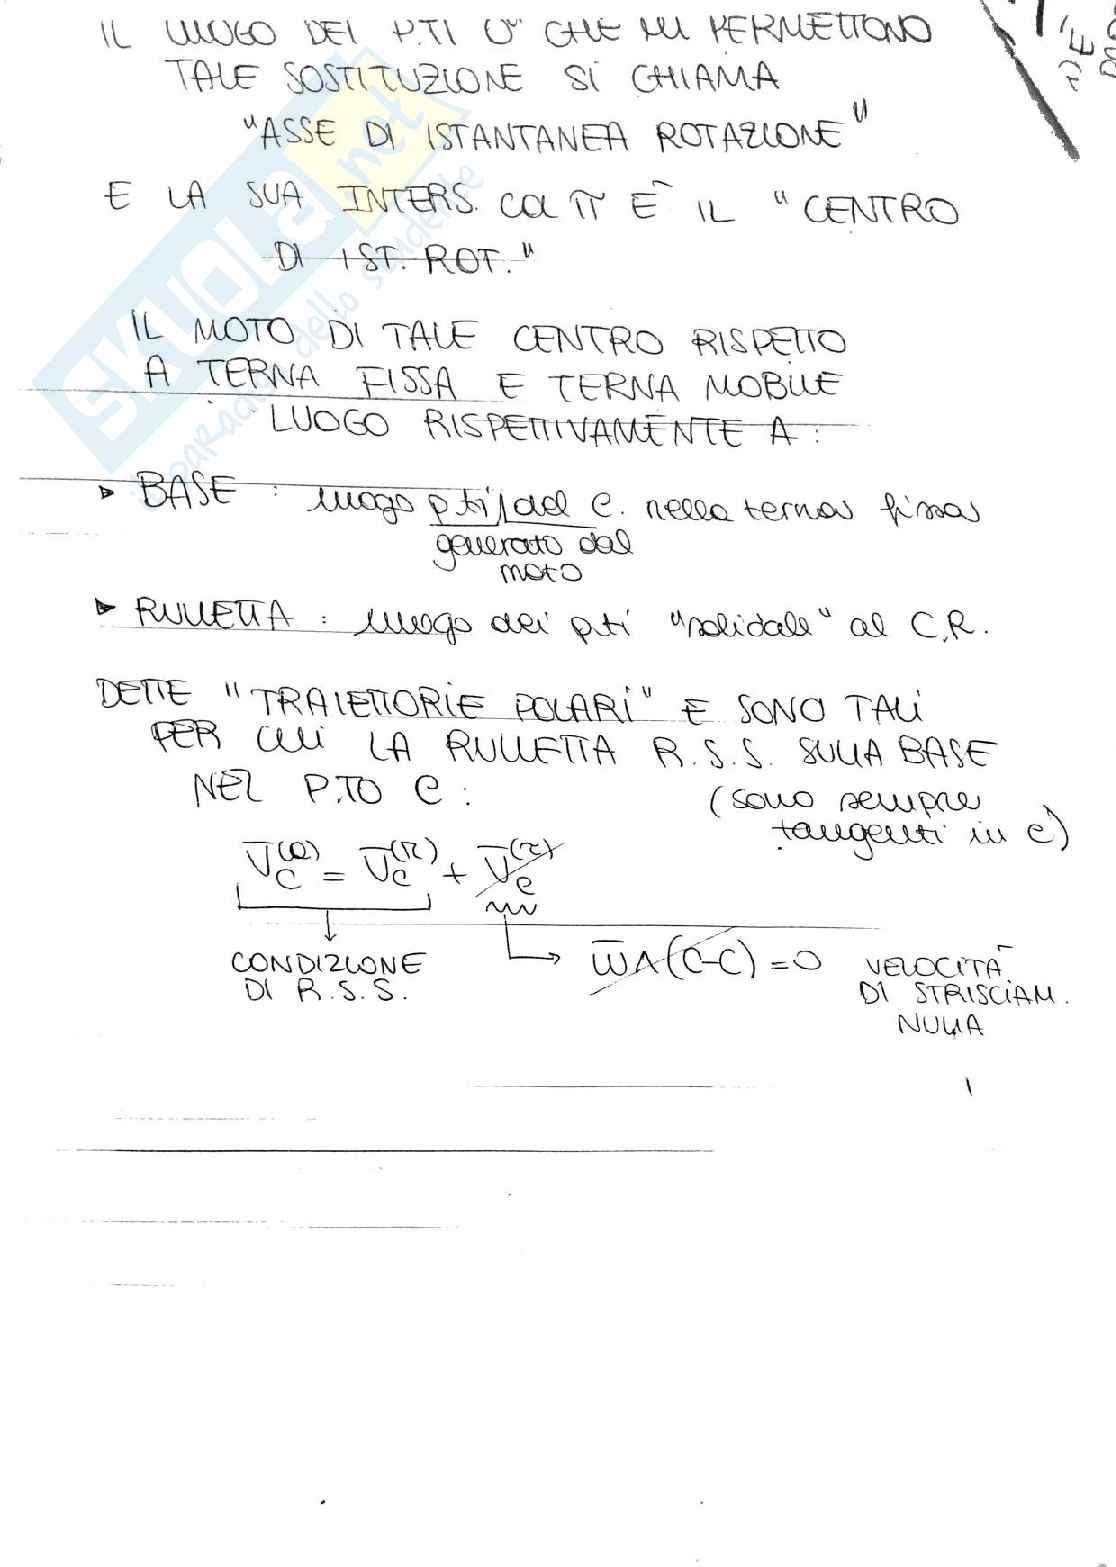 IL LUOGO DEI P.TI O" CHE MI PERMETTONO
TALE SOSTITUZIONE SI CHIAMA
"ASSE DI ISTANTANEA ROTAZIONE"
E LA SUA INTERS. COL π È IL "CENTRO
DI IST. ROT."
IL MOTO DI TALE CENTRO RISPETTO
A TERNA FISSA E TERNA MOBILE
LUOGO RISPETTIVAMENTE A :
▶ BASE : luogo p.ti del C. nella terna fissa
generato dal
moto
▶ RULLETTA : luogo dei p.ti "solidale" al C.R.
DETTE "TRAIETTORIE POLARI" E SONO TALI
PER CUI LA RULLETTA R.S.S. SULLA BASE
NEL P.TO C : (sono sempre
tangenti in C)
V̄_C^(a) = V̄_C^(r) + V̄_C^(τ)
CONDIZIONE
DI R.S.S.
ω̄∧(C-C) = 0
VELOCITÀ
DI STRISCIAM.
NULLA
SKUOLA.net
il paradiso dello studente